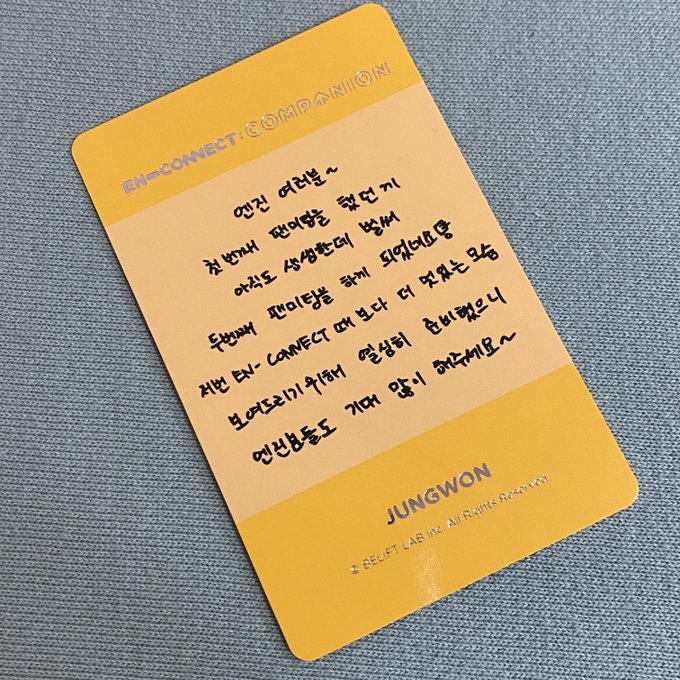 EN-CONNECT: COMPANION
엔진 여러분~
첫번째 팬미팅을 했던게
아직도 생생한데 벌써
두번째 팬미팅을 하게 되었네요
저번 EN- CONNECT 때 보다 더 멋있는 모습
보여드리기위해 열심히 준비했으니
엔진분들도 기대 많이 해주세요~
JUNGWON
© BELIFT LAB Inc. All Rights Reserved